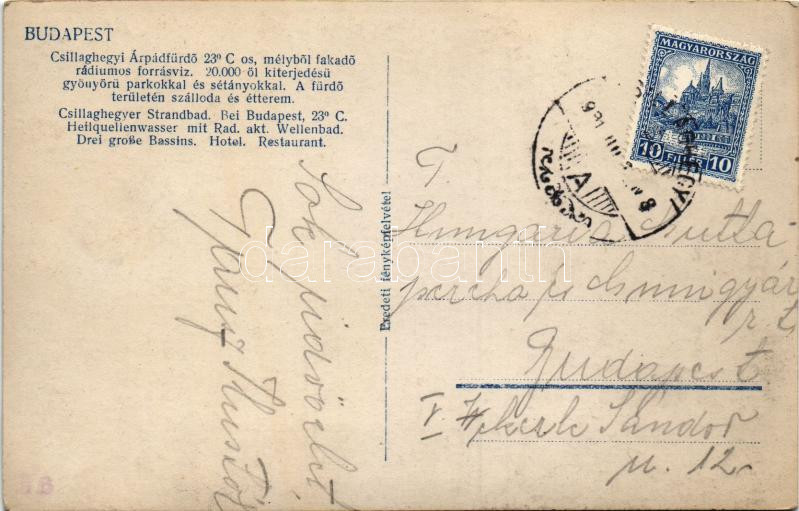 BUDAPEST
Csillaghegyi Árpádfürdő 23º C os, mélyből fakadó
rádiumos forrásviz. 20.000 öl kiterjedésü
gyönyörű parkokkal és sétányokkal. A fürdő
területén szálloda és étterem.
Csillaghegyer Strandbad. Bei Budapest, 23º C.
Heilquellenwasser mit Rad. akt. Wellenbad.
Drei große Bassins. Hotel. Restaurant.
Sok üdvözlet
Eredeti fényképfelvétel
MAGYARORSZÁG
10 FILLÉR 10
A
T.
Hungária Gutta
percha és Gumigyár
r.t.
Budapest
V. Wekerle Sándor
u. 12.
darabanth